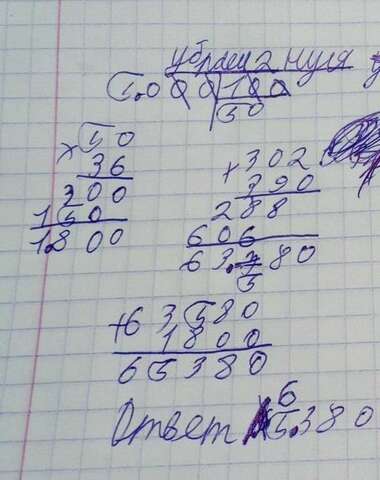 убраем 2 нуля
5.000|100
50
×50
36
300
150
1.800
×302
390
288
606
63.780
5
+63580
1800
65380
6
Ответ 5.380